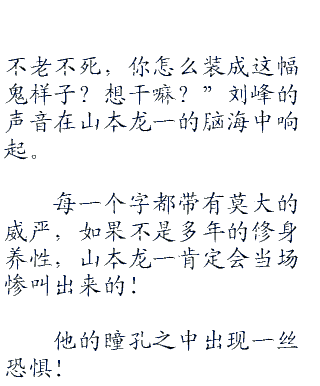 不老不死，你怎么装成这幅
鬼样子？想干嘛？”刘峰的
声音在山本龙一的脑海中响
起。
每一个字都带有莫大的
威严，如果不是多年的修身
养性，山本龙一肯定会当场
惨叫出来的！
他的瞳孔之中出现一丝
恐惧！